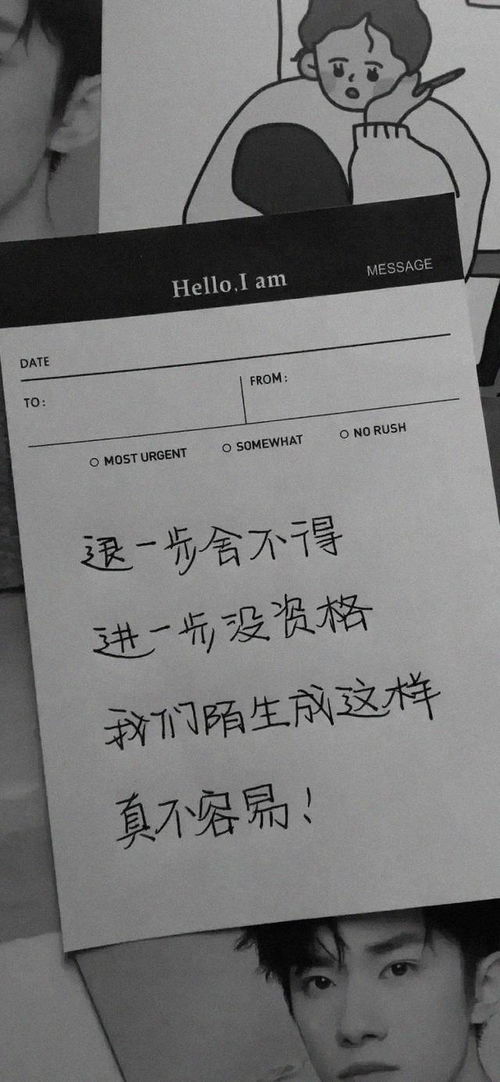 Hello,I am
MESSAGE
DATE
TO:
FROM:
MOST URGENT
SOMEWHAT
NO RUSH
退一步舍不得
进一步没资格
我们陌生成这样
真不容易！